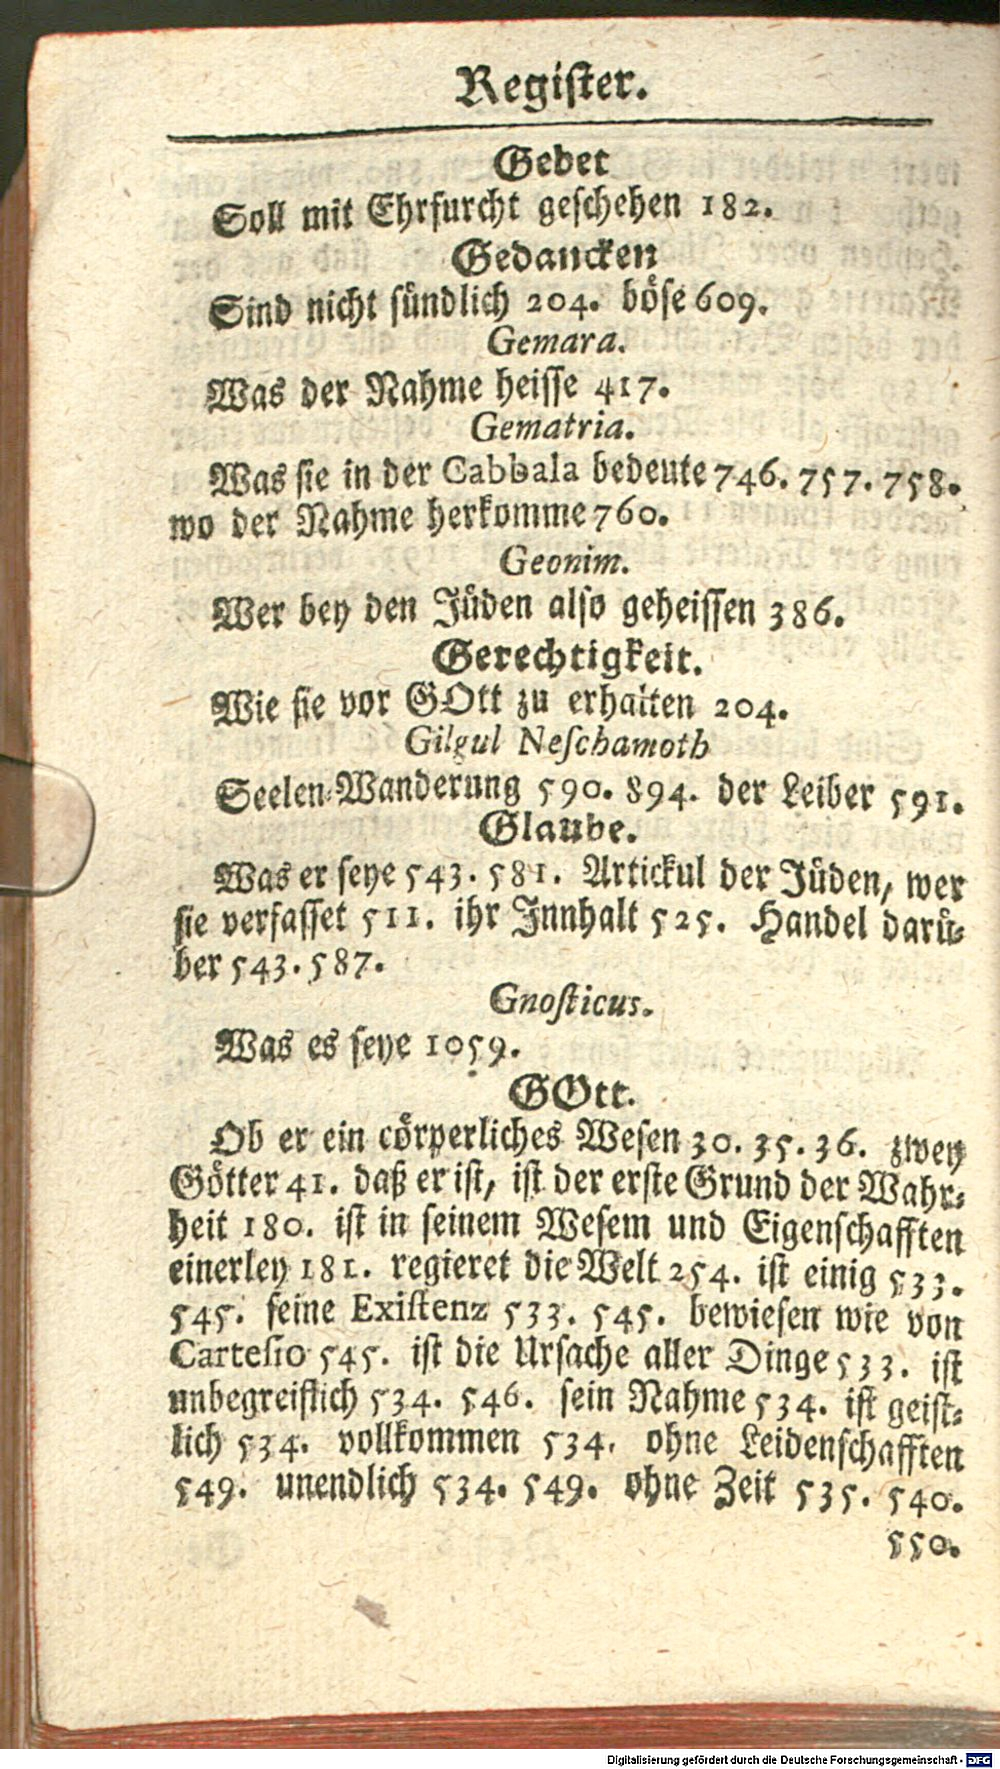 Register.
Gebet
Soll mit Ehrfurcht geschehen 182.
Gedancken
Sind nicht sündlich 204. böse 609.
Gemara.
Was der Nahme heisse 417.
Gematria.
Was sie in der Cabbala bedeute 746. 757. 758.
wo der Nahme herkomme 760.
Geonim.
Wer bey den Jüden also geheissen 386.
Gerechtigkeit.
Wie sie vor GOtt zu erhalten 204.
Gilgul Neschamoth
Seelen-Wanderung 590. 894. der Leiber 591.
Glaube.
Was er seye 543. 581. Artickul der Jüden, wer
sie verfasset 511. ihr Innhalt 525. Handel darü-
ber 543. 587.
Gnosticus.
Was es seye 1059.
GOtt.
Ob er ein cörperliches Wesen 30. 35. 36. zwey
Götter 41. daß er ist, ist der erste Grund der Wahr-
heit 180. ist in seinem Wesem und Eigenschafften
einerley 181. regieret die Welt 254. ist einig 533.
545. seine Existenz 533. 545. bewiesen wie von
Cartesio 545. ist die Ursache aller Dinge 533. ist
unbegreiflich 534. 546. sein Nahme 534. ist geist-
lich 534. vollkommen 534. ohne Leidenschafften
549. unendlich 534. 549. ohne Zeit 535. 540.
550.
Digitalisierung gefördert durch die Deutsche Forschungsgemeinschaft - DFG